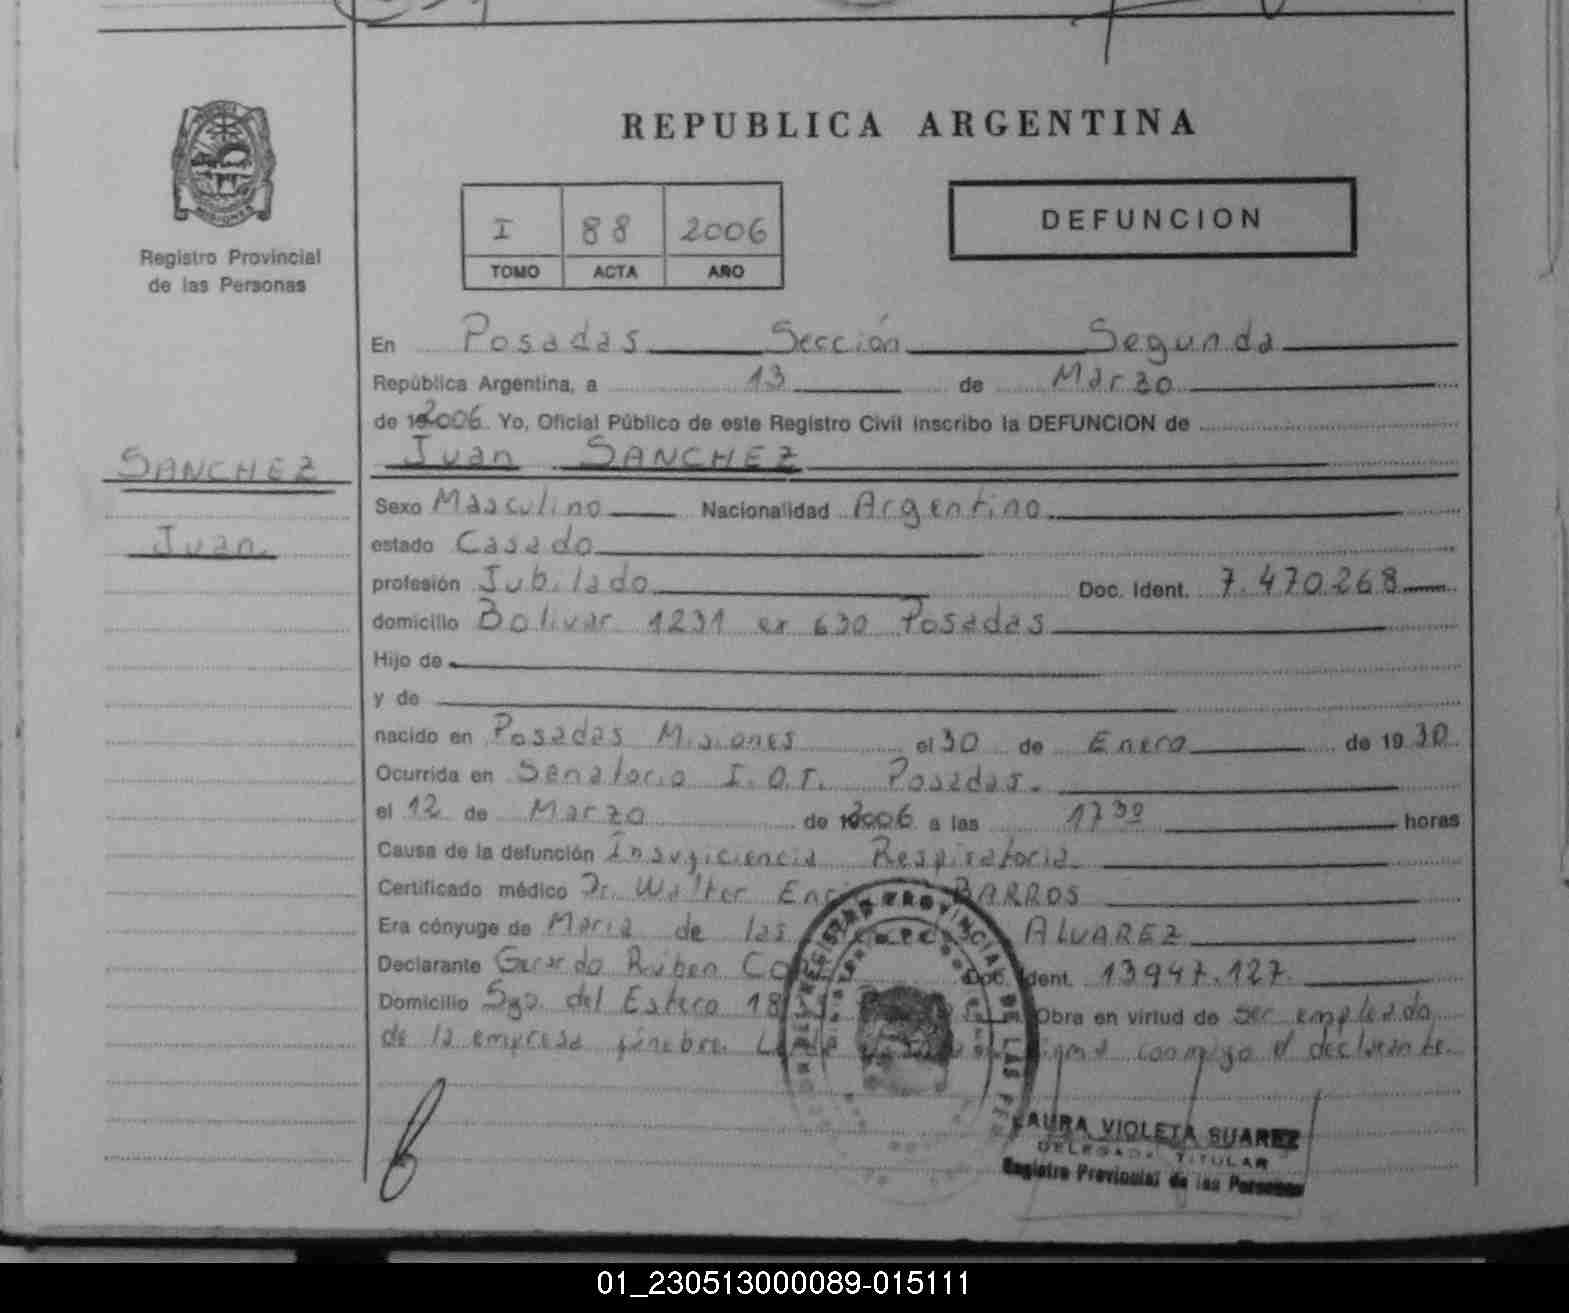 REPUBLICA ARGENTINA
I 88 2006
TOMO ACTA AÑO
DEFUNCION
MISIONES
Registro Provincial
de las Personas
SANCHEZ
Juan
En Posadas Sección Segunda
República Argentina, a 13 de Marzo
de 2006. Yo, Oficial Público de este Registro Civil inscribo la DEFUNCION de
Juan SANCHEZ
Sexo Masculino Nacionalidad Argentino
estado Casado
profesión Jubilado Doc. Ident. 7.470.268
domicilio Bolivar 1231 ex 630 Posadas
Hijo de
y de
nacido en Posadas Misiones el 30 de Enero de 1930
Ocurrida en Sanatorio I.O.T. Posadas.
el 12 de Marzo de 2006 a las 17 30 horas
Causa de la defunción Insuficiencia Respiratoria
Certificado médico Dr. Walter BARROS
Era cónyuge de Maria de las ALVAREZ
Declarante Gerardo Ruben Doc. Ident. 13947.127
Domicilio Sgo. del Estero 18 Obra en virtud de ser empleado
de la empresa fúnebre conmigo el declarante.
REGISTRO PROVINCIAL DE LAS
LAURA VIOLETA SUAREZ
DELEGADA TITULAR
Registro Provincial de las Personas
01_230513000089-015111